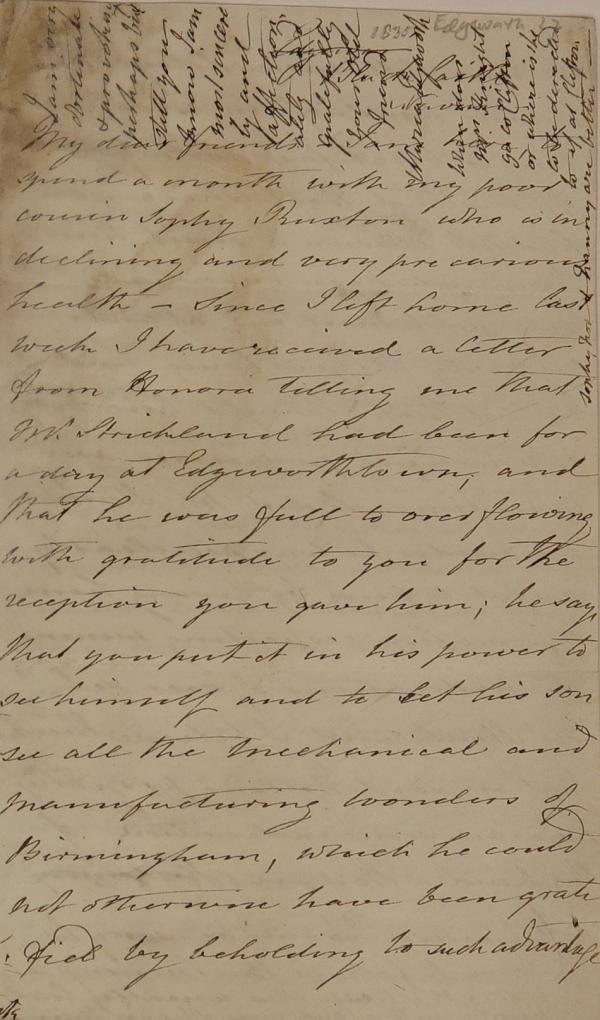 1835
Edgeworth 27
My dear friends I am here to
spend a month with my poor
cousin Sophy Ruxton who is in
declining and very precarious
health – Since I left home last
week I have received a letter
from Honora telling me that
Mr. Strickland had been for
a day at Edgeworthtown, and
that he was full to overflowing
with gratitude to you for the
reception you gave him; he says
that you put it in his power to
see himself and to let his son
see all the mechanical and
manufacturing wonders of
Birmingham, which he could
not otherwise have been grati
fied by beholding to such advantage
I am very
obstinate
& provoking
perhaps but
still you
know I am
most sincere
ly and
affection
ately and
gratefully
your old
friend
Maria Edgeworth
When does
Miss
go to Clifton
or where is she
to be directed
to if at Clifton
Sophy Fox & Fanny are better –